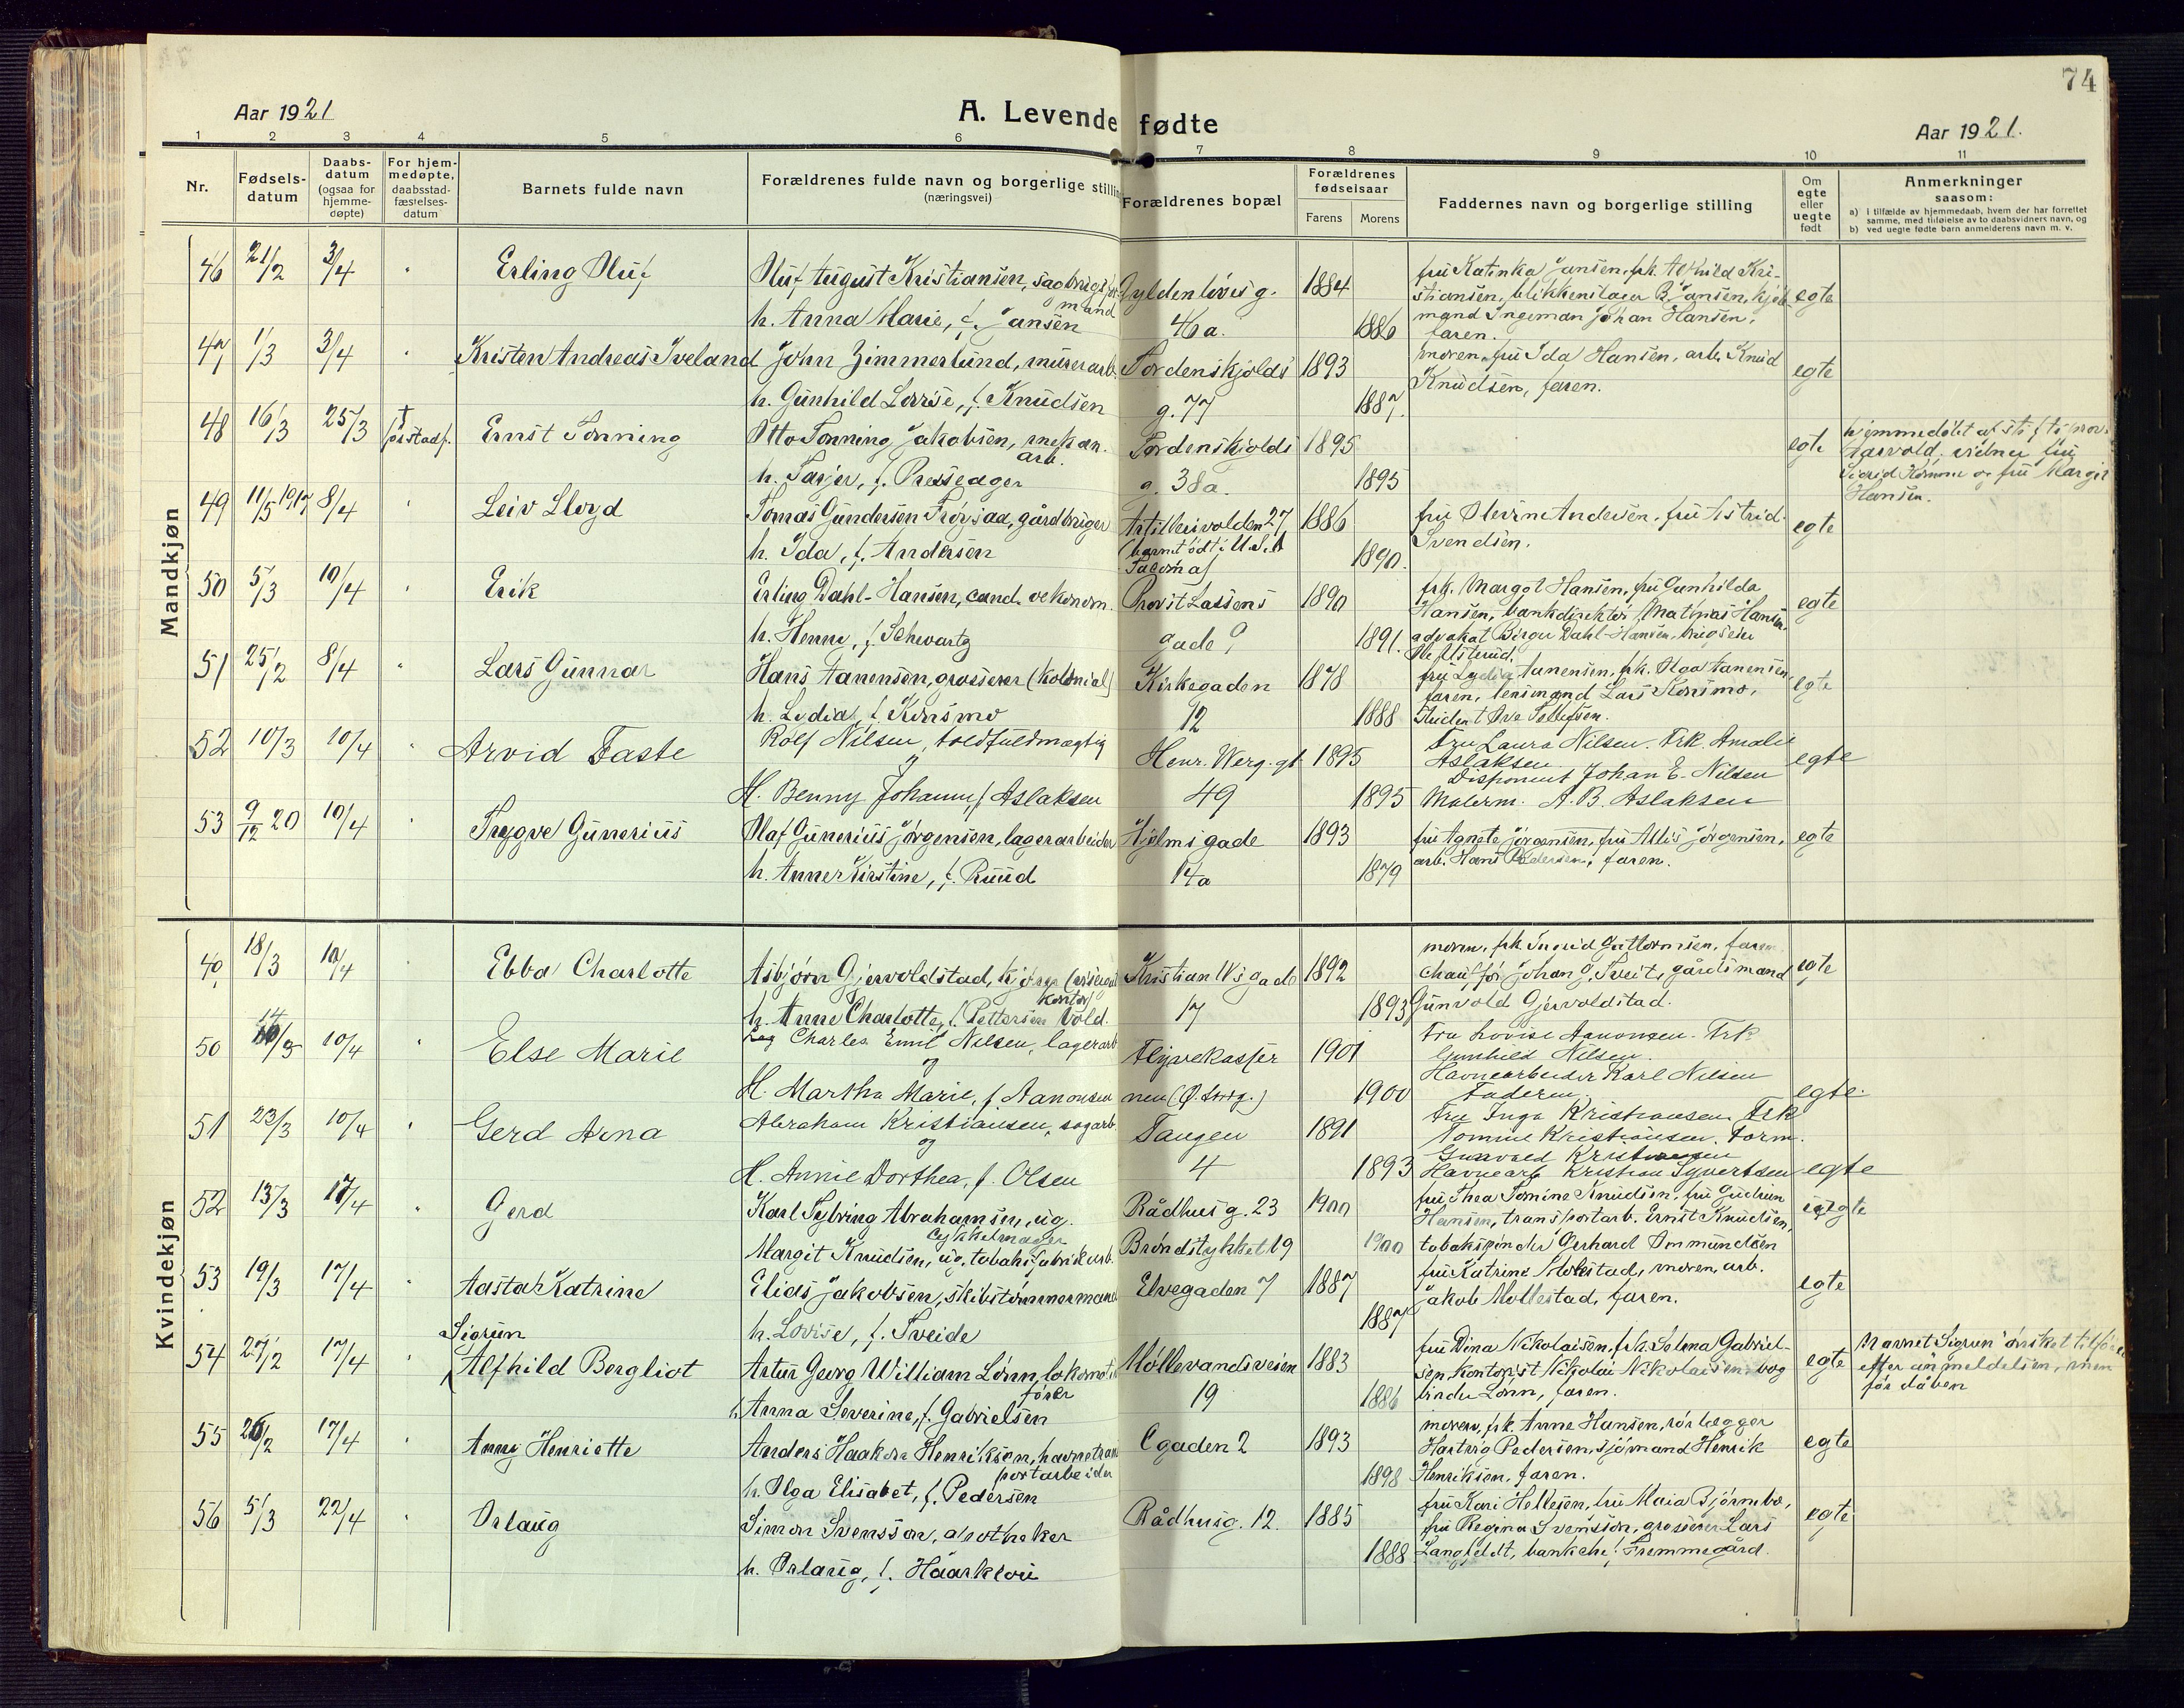 74
Aar 1921
A. Levende fødte
Aar 1921.
1 2 3 4 5 6 7 8 9 10 11
Nr.
Fødsels-
datum
Daabs-
datum
(ogsaa for
hjemme-
døpte)
For hjem-
medøpte,
daabsstad-
fæstelses-
datum
Barnets fulde navn
Forældrenes fulde navn og borgerlige stillin
(næringsvei)
Forældrenes bopæl
Forældrenes
fødselsaar
Farens Morens
Faddernes navn og borgerlige stilling
Om
egte
eller
uegte
født
Anmerkninger
saasom:
a) i tilfælde av hjemmedaab, hvem der har forrettet
samme, med tilføielse av to daabsvidners navn, og
b) ved uegte fødte barn anmelderens navn m. v.
Mandkjøn
46 21/2 3/4 Erling Oluf
Oluf August Kristiansen, sagbrugsfor-
mand
h. Anna Marie, f. Jansen
Gyldenløvesg.
46a.
1884
1886
fru Katinka Jansen, frk. Alfhild Kri-
stiansen, blikkenslager B. Jansen, kjøb
mand Ingeman Johan Hansen,
faren.
egte
47 1/3 3/4 Kristen Andreas Iveland
John Zimmerlund, murerarb.
h. Gunhild Lovise, f. Knudsen
Tordenskjolds
g. 77
1893
1887.
moren, fru Ida Hansen, arb. Knud
Knudsen, faren.
egte
48 16/3 25/3 † Ernst Tonning
Otto Tonning Jakobsen, mekan.
arb.
h. Tarjer, f. Pressager
Tordenskjolds
g. 38a.
1895
1895
egte
hjemmedøbt af stiftsprov.
vidner fru
Sigrid Komme og fru Margit
Hansen.
49 11/5 1917 8/4 Leiv Lloyd
Tomas Gundersen Frøysaa, gårdbruger
h. Ida, f. Andersen
Artillerivolden 27
(barnet født i U.S.A
Tacoma)
1886
1890.
fru Olevine Andersen, fru Astrid
Svendsen.
egte
50 5/3 10/4 Erik
Erling Dahl-Hansen, cand. oekonom.
h. Henny, f. Schwartz
Provst Lassens
gade 9
1890
1891.
frk. Margot Hansen, fru Gunhilda
Hansen, bankdirektør Mathias Hansen,
advokat Birger Dahl-Hansen,
egte
51 25/2 8/4 Lars Gunnar
Hans Aanensen, grosserer (kolonial)
h. Lydia, f. Konsmo
Kirkegaden
12
1878
1888
fru Lydia Aanensen, frk. Olga Aanensen,
faren, lensmand Lars Konsmo,
student Ove Tellefsen.
egte
52 10/3 10/4 Arvid Faste
Rolf Nilsen, toldfuldmægtig
og
H. Benny Johanne f. Aslaksen
Henr. Werg. gt
49
1895
1895
Fru Laura Nilsen. Frk. Amalie
Aslaksen
Disponent Johan E. Nilsen
Malerm. A. B. Aslaksen
egte
53 9/12 20 10/4 Trygve Gunerius
Olaf Gunerius Jørgensen, lagerarbeider
h. Anne Kirstine, f. Ruud
Hjelmsgade
14a
1893
1879
fru Agnete Jørgensen, fru Allis Jørgensen,
arb. Hans Pedersen, faren.
egte
Kvindekjøn
49 18/3 10/4 Ebba Charlotte
Asbjørn Gjervoldstad,
kontor)
h. Anne Charlotte, f. Pettersen Vold.
Kristian IVs gade
17
1892
1893
moren, frk. Ingrid Guttormsen, faren
chauffør Johan G. Tveit, gårdsmand
Gunvold Gjervoldstad.
egte
50 14/3 10/4 Else Marie
Charles Emil Nilsen, lagerarb
og
H. Martha Marie, f. Aanonsen
Flyvekaster
nen (Ø. Strg.)
1901
1900
Fru Lovise Aanonsen. Frk.
Gunhild Nilsen.
Havnearbeider Karl Nilsen
Faderen.
egte.
51 23/3 10/4 Gerd Arna
Abraham Kristiansen, sagarb.
og
H. Annie Dorthea, f. Olsen
Tangen
4
1891
1893
Fru Inga Kristiansen. Frk
Tomine Kristiansen. Form.
Gunvald Kristiansen
Havnearb Kristian Syvertsen
egte
52 13/3 17/4 Gerd
Karl Sylvring Abrahamsen, ug.
cykkelmager
Margit Knudsen, ug. tobaksfabrikarb.
Rådhusg. 23
Brøndstykket 19
1900
1900
fru Thea Tomine Knudsen, fru Gudrun
Hansen, transportarb. Ernst Knudsen,
tobakspinder Gerhard Ommundsen
uegte
53 19/3 17/4 Aasta Katrine
Elias Jakobsen, skibstømmermand
h. Lovise, f. Tveide
Elvegaden 7
1887
1887
fru Katrine Mollestad, moren, arb.
Jakob Mollestad, faren.
egte
54 27/2 17/4 Sigrun
Alfhild Bergliot
Artur Georg William Lønn, lokomotiv
fører
h. Anna Severine, f. Gabrielsen
Møllevandsveien
19
1883
1886
fru Dina Nikolaisen, frk. Selma Gabriel-
sen, kontorist Nikolai Nikolaisen, bog
binder Lønn, faren.
egte
Navnet Sigrun ønsket tilføiet
efter anmeldelsen, men
før dåben
55 26/2 17/4 Anny Henriette
Anders Haakon Henriksen, havnetrans
portarbeider
h. Olga Elisabet, f. Pedersen
Egaden 2
1893
1898
moren, frk. Anne Hansen, rørlægger
Hartvig Pedersen, sjømand Henrik
Henriksen, faren.
egte
56 5/3 22/4 Orlaug
Simon Svensson, apotheker
h. Orlaug, f. Haarklou
Rådhusg. 12.
1885
1888
fru Kari Hellesen, fru Maia Bjørnebo,
fru Regina Svensson, grosserer Lars
Langfeldt, bankchef Fremmegård.
egte